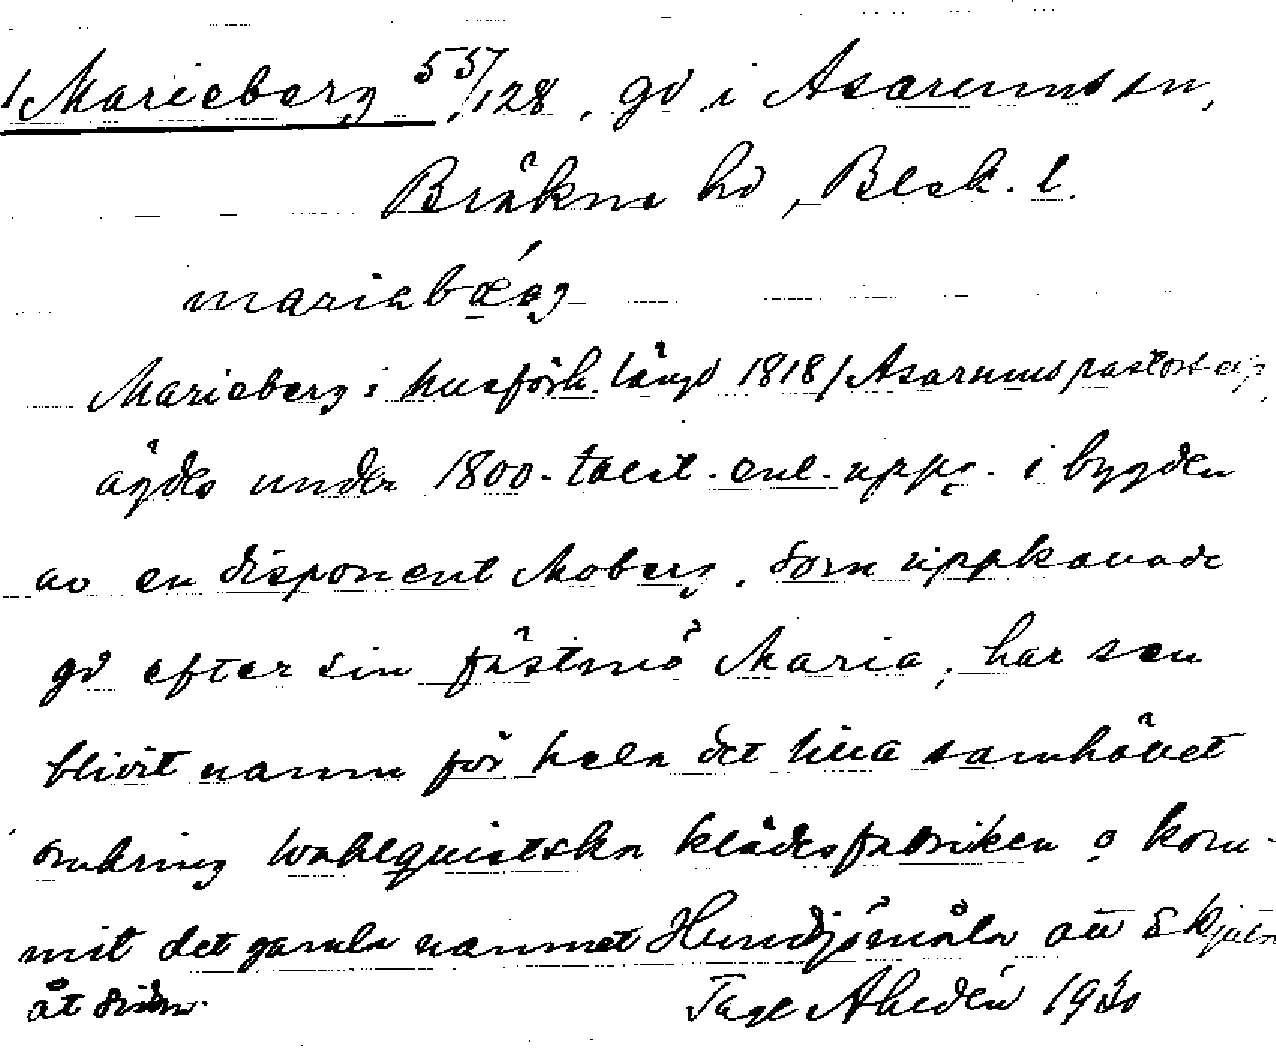 Marieberg 55/128, gd i Asarums sn,
Bräkne hd, Blek. l.
Marieberg i husförh. längd 1818 / Asarums pastorsexp
ägdes under 1800-talet enl. uppg. i bygden
av en disponent Moberg, som uppkavade
gd efter sin fästmö Maria, har sen
blivit namn för hela det lilla samhället
omkring Wahlquistska klädesfabriken o kom-
mit det gamla namnet Hundsjömåla att skjuta
åt sidan. Tage Ahedén 1930